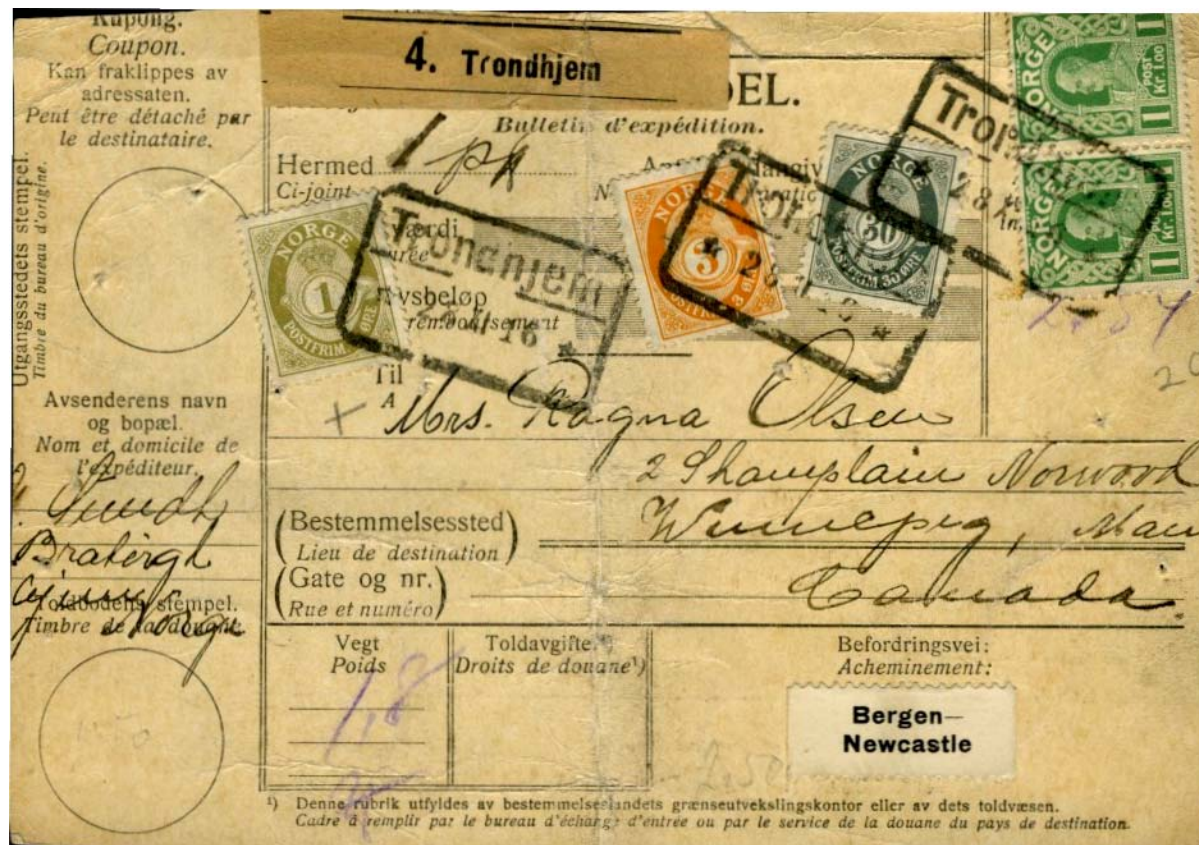 Kupong.
Coupon.
Kan fraklippes av
adressaten.
Peut être détaché par
le destinataire.
Utgangsstedets stempel.
Timbre du bureau d'origine.
Avsenderens navn
og bopæl.
Nom et domicile de
l'expéditeur.
Toldbodens stempel.
Timbre de la douane.
4. Trondhjem
DEL.
Bulletin d'expédition.
Hermed 1 pk
Ci-joint
Værdi
NORGE
1
ØRE
POSTFRIM
Trondhjem
16
NORGE
3
3 ØRE
POSTFRIM
28
NORGE
30
POSTFRIM 30 ØRE
28
NORGE
POST
Kr. 1.00
1
NORGE
Kr. 1.00
1
2.34
Til
A
Mrs. Ragna Olsen
2 Shamplain Norwood
Winnepig, Man
Canada
(Bestemmelsessted)
Lieu de destination
(Gate og nr.)
Rue et numéro
Vegt
Poids
1,8
Toldavgifter
Droits de douane¹)
Befordringsvei:
Acheminement:
Bergen—
Newcastle
2,50
¹) Denne rubrik utfyldes av bestemmelseslandets grænseutvekslingskontor eller av dets toldvæsen.
Cadre à remplir par le bureau d'échange d'entrée ou par le service de la douane du pays de destination.